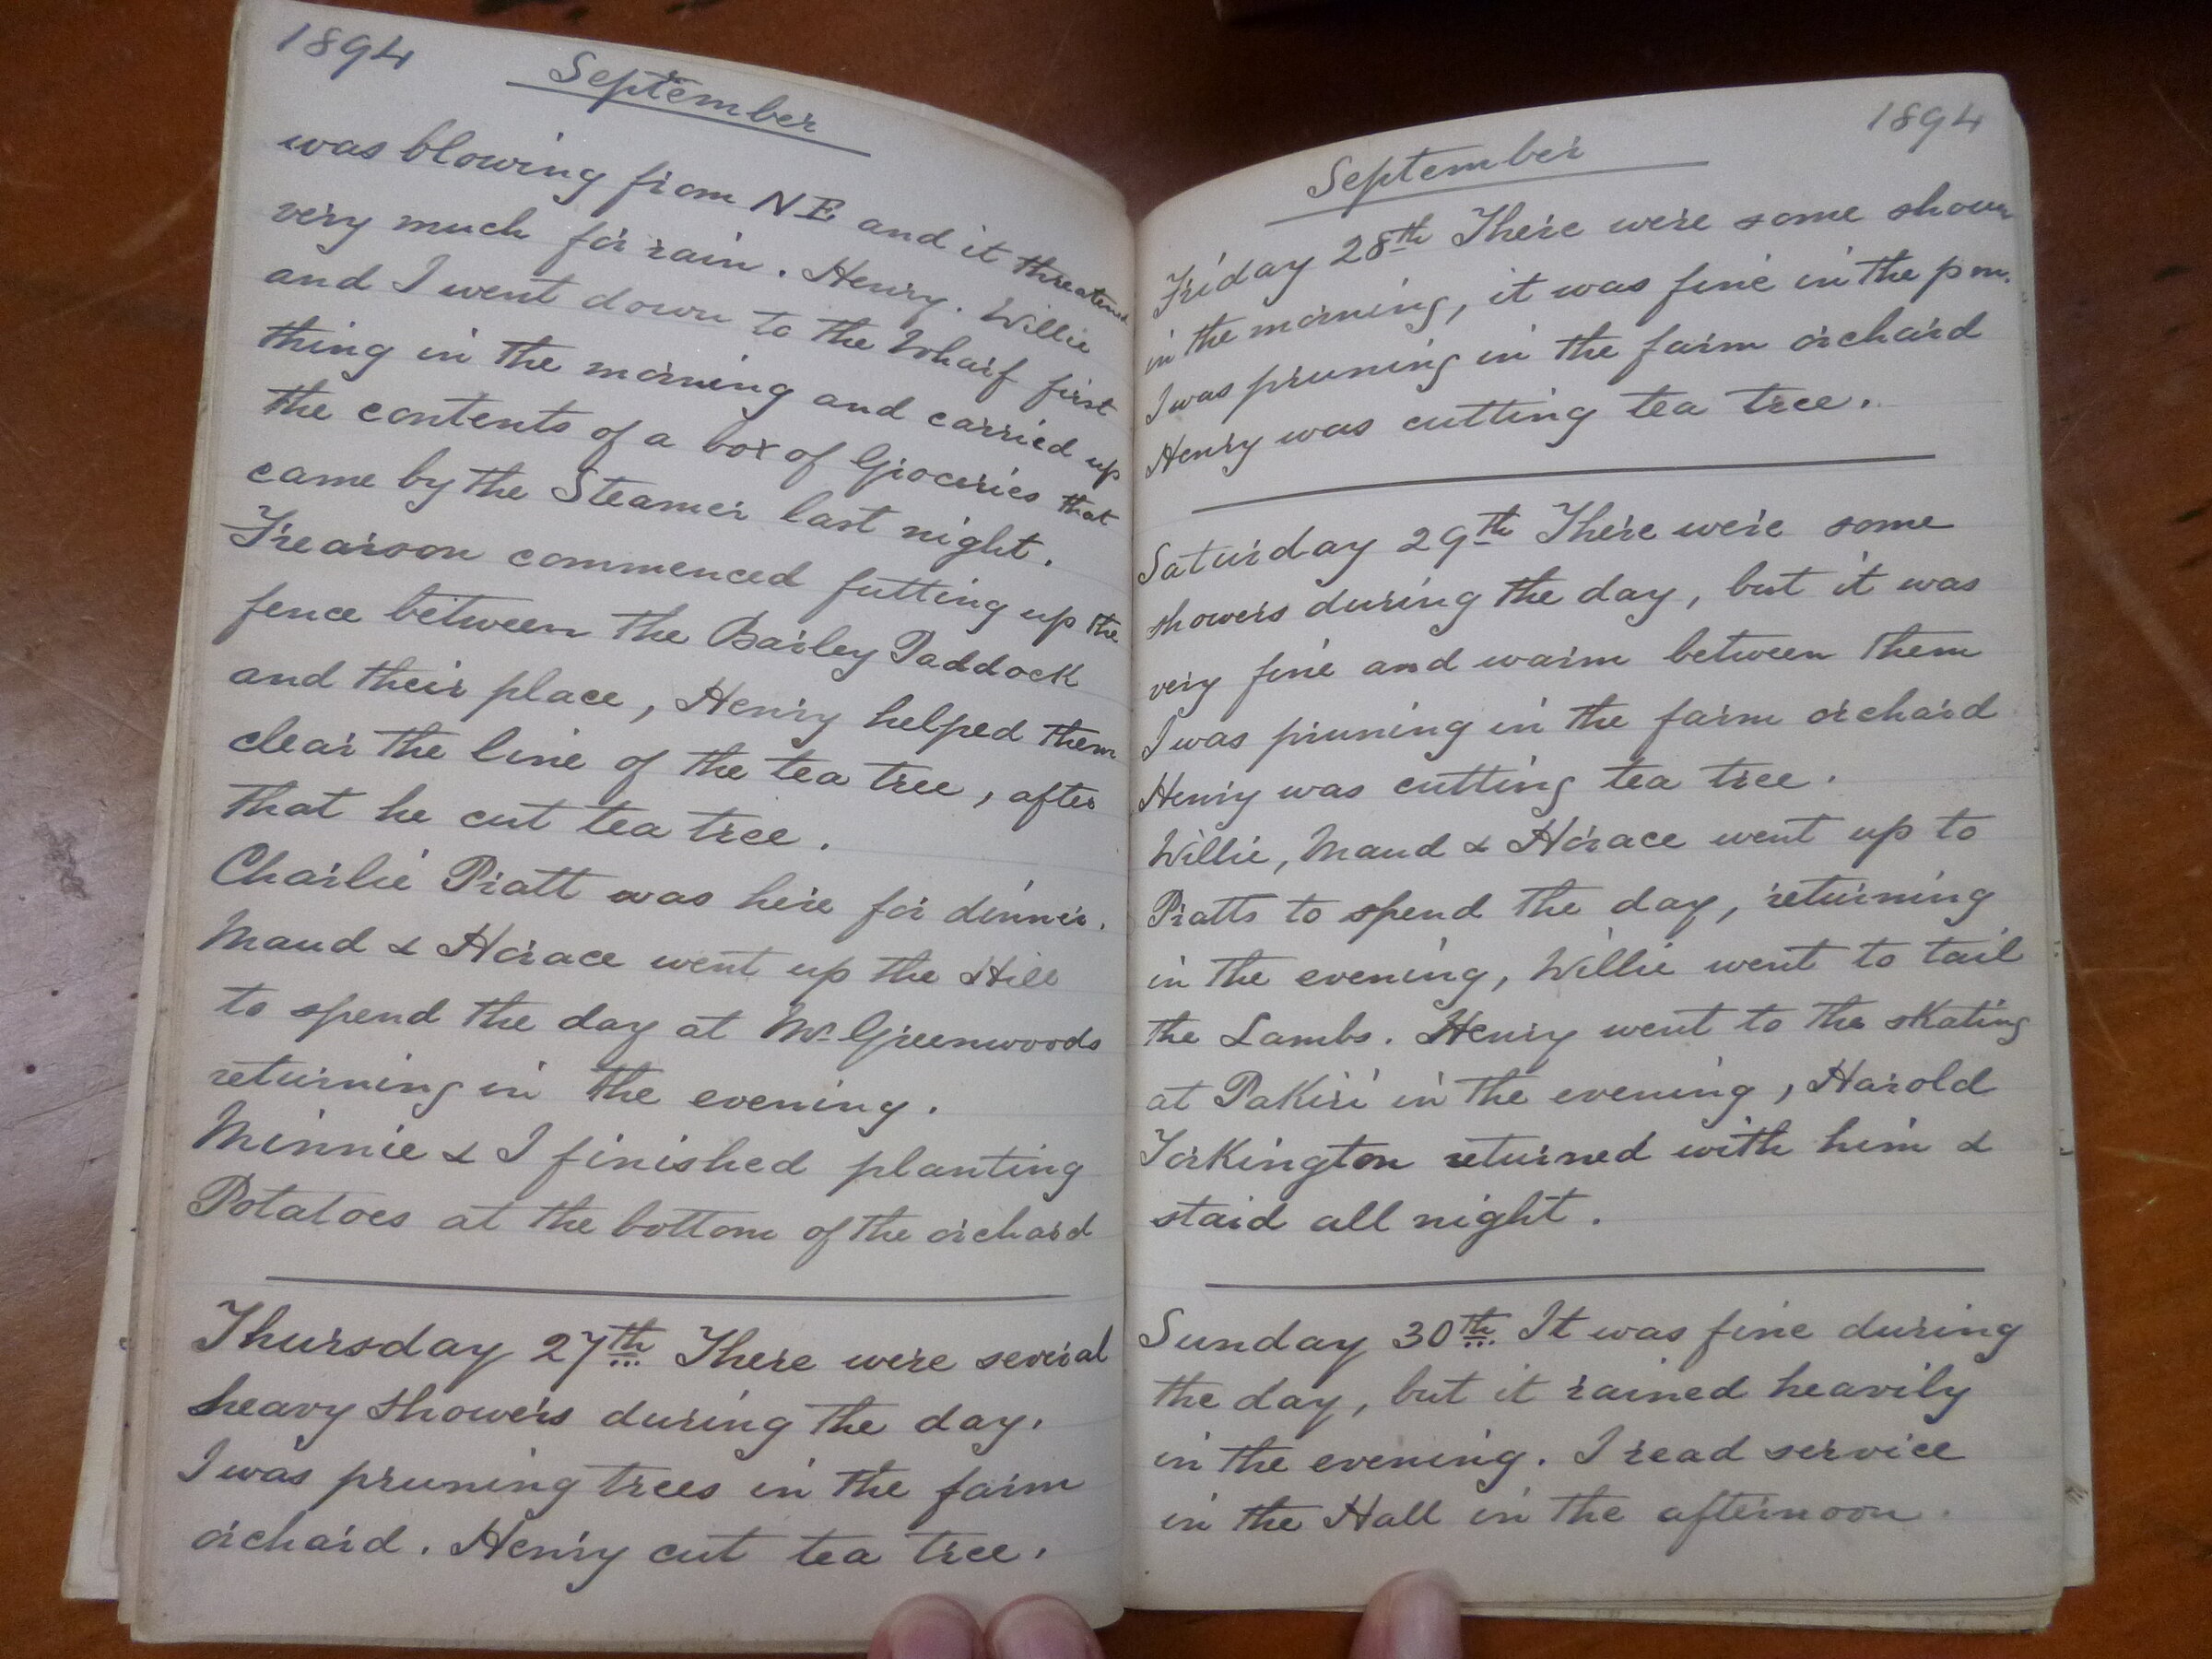 1894
September
was blowing from NE and it threatened
very much for rain. Henry. Willie
and I went down to the Wharf first
thing in the morning and carried up
the contents of a box of Groceries that
came by the Steamer last night.
Frearson commenced putting up the
fence between the Barley Paddock
and their place, Henry helped them
clear the line of the tea tree, after
that he cut tea tree.
Charlie Pratt was here for dinner.
Maud & Horace went up the Hill
to spend the day at Mr Greenwoods
returning in the evening.
Minnie & I finished planting
Potatoes at the bottom of the orchard
Thursday 27th There were several
heavy showers during the day.
I was pruning trees in the farm
orchard. Henry cut tea tree.
1894
September
Friday 28th There were some showers
in the morning, it was fine in the pm.
I was pruning in the farm orchard
Henry was cutting tea tree.
Saturday 29th There were some
showers during the day, but it was
very fine and warm between them
I was pruning in the farm orchard
Henry was cutting tea tree.
Willie, Maud & Horace went up to
Pratts to spend the day, returning
in the evening, Willie went to tail
the Lambs. Henry went to the skating
at Pakiri in the evening, Harold
Torkington returned with him &
staid all night.
Sunday 30th It was fine during
the day, but it rained heavily
in the evening. I read service
in the Hall in the afternoon.